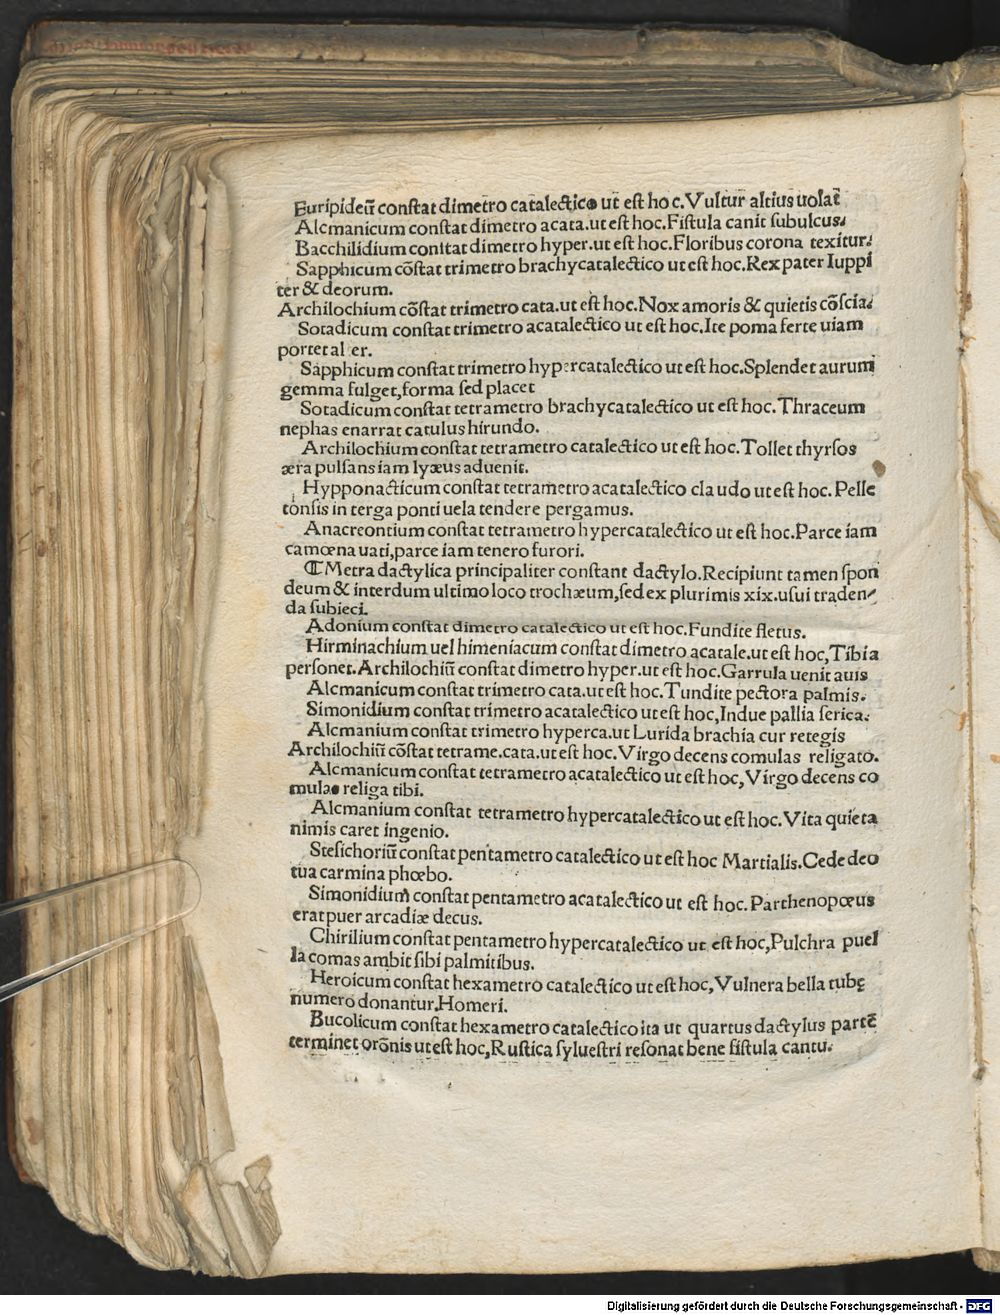 Euripideū constat dimetro catalectico ut est hoc. Vultur altius uolat̄
Alcmanicum constat dimetro acata. ut est hoc. Fistula canit subulcus.
Bacchilidium constat dimetro hyper. ut est hoc. Floribus corona texitur.
Sapphicum cōstat trimetro brachycatalectico ut est hoc. Rex pater Iuppi
ter & deorum.
Archilochium cōstat trimetro cata. ut est hoc. Nox amoris & quietis cōscia.
Sotadicum constat trimetro acatalectico ut est hoc. Ite poma ferte uiam
portet al er.
Sapphicum constat trimetro hypercatalectico ut est hoc. Splendet aurum
gemma fulget, forma sed placet
Sotadicum constat tetrametro brachycatalectico ut est hoc. Thraceum
nephas enarrat catulus hirundo.
Archilochium constat tetrametro catalectico ut est hoc. Tollet thyrsos
æra pulsans iam lyæus aduenit.
Hypponacticum constat tetrametro acatalectico claudo ut est hoc. Pelle
tonsis in terga ponti uela tendere pergamus.
Anacreontium constat tetrametro hypercatalectico ut est hoc. Parce iam
camœna uati, parce iam tenero furori.
¶ Metra dactylica principaliter constant dactylo. Recipiunt tamen spon
deum & interdum ultimo loco trochæum, sed ex plurimis xix. usui traden-
da subieci.
Adonium constat dimetro catalectico ut est hoc. Fundite fletus.
Hirminachium uel himeniacum constat dimetro acatale. ut est hoc, Tibia
personet. Archilochiū constat dimetro hyper. ut est hoc. Garrula uenit auis
Alcmanicum constat trimetro cata. ut est hoc. Tundite pectora palmis.
Simonidium constat trimetro acatalectico ut est hoc, Indue pallia serica.
Alcmanium constat trimetro hyperca. ut Lurida brachia cur retegis
Archilochiū cōstat tetrame. cata. ut est hoc. Virgo decens comulas religato.
Alcmanicum constat tetrametro acatalectico ut est hoc, Virgo decens co
mulas religa tibi.
Alcmanium constat tetrametro hypercatalectico ut est hoc. Vita quieta
nimis caret ingenio.
Stesichoriū constat pentametro catalectico ut est hoc Martialis. Cede deo
tua carmina phœbo.
Simonidium constat pentametro acatalectico ut est hoc. Parthenopœus
erat puer arcadiæ decus.
Chirilium constat pentametro hypercatalectico ut est hoc, Pulchra puel
la comas ambit sibi palmitibus.
Heroicum constat hexametro catalectico ut est hoc, Vulnera bella tubę
numero donantur. Homeri.
Bucolicum constat hexametro catalectico ita ut quartus dactylus partē
terminet orōnis ut est hoc, Rustica syluestri resonat bene fistula cantu.
Digitalisierung gefördert durch die Deutsche Forschungsgemeinschaft - DFG